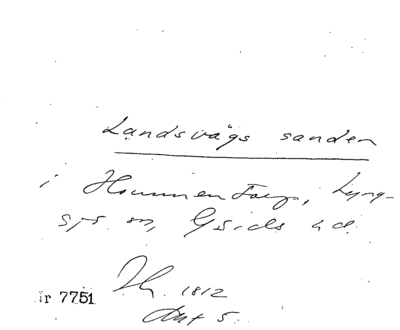 Landsvägs sanden
i Hammentorp, Lyng-
sjö sn, Gärds hd.
Nr 7751 1812
Akt 5.